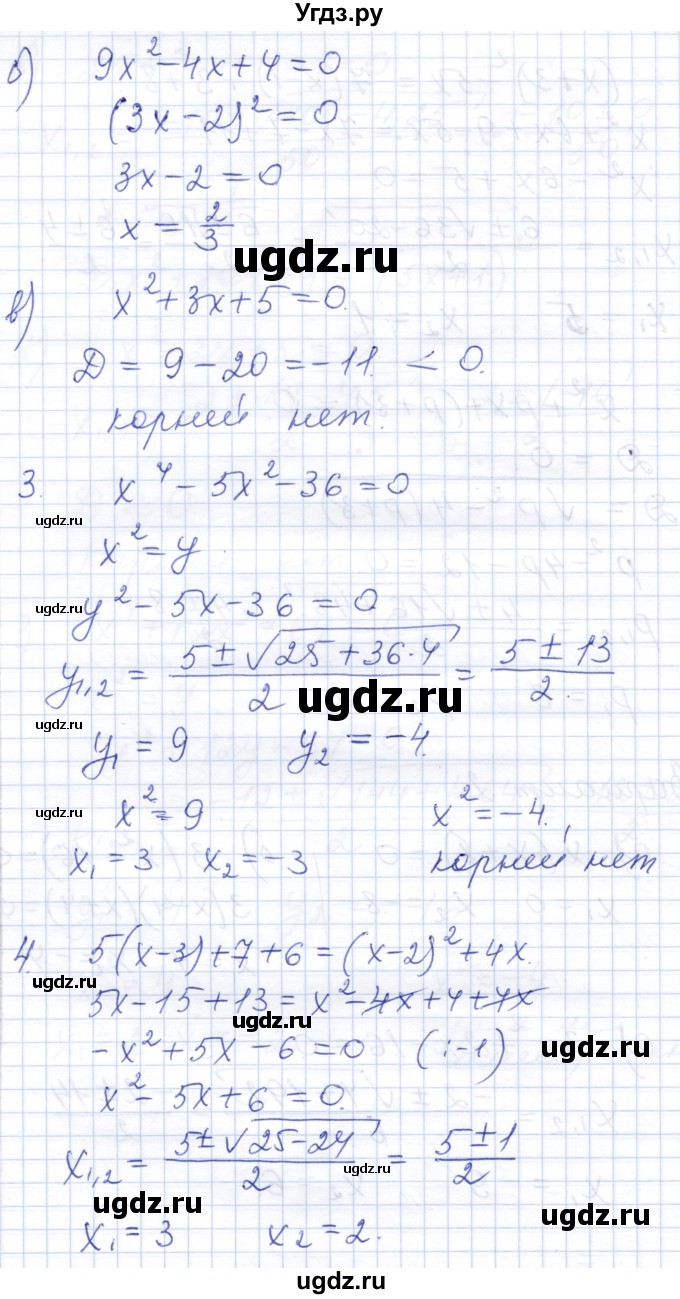 Угдз.ру
б) 9x² − 4x + 4 = 0
(3x − 2)² = 0
3x − 2 = 0
x = 2/3
ugdz.ru
в) x² + 3x + 5 = 0.
Д = 9 − 20 = −11. < 0.
корней нет.
3. x⁴ − 5x² − 36 = 0
ugdz.ru
x² = y
ugdz.ru
y² − 5x − 36 = 0
y₁,₂ = (5 ± √(25 + 36·4))/2 = (5 ± 13)/2.
ugdz.ru
ugdz.ru
y₁ = 9 y₂ = −4.
ugdz.ru
x² = 9 x² = −4.,
x₁ = 3 x₂ = −3 корней нет
4. 5(x − 3) + 7 + 6 = (x − 2)² + 4x.
ugdz.ru
5x − 15 + 13 = x² − 4x + 4 + 4x
ugdz.ru
−x² + 5x − 6 = 0 (:−1)
ugdz.ru
x² − 5x + 6 = 0.
x₁,₂ = (5 ± √(25 − 24))/2 = (5 ± 1)/2
ugdz.ru
ugdz.ru
x₁ = 3 x₂ = 2.
ugdz.ru
ugdz.ru